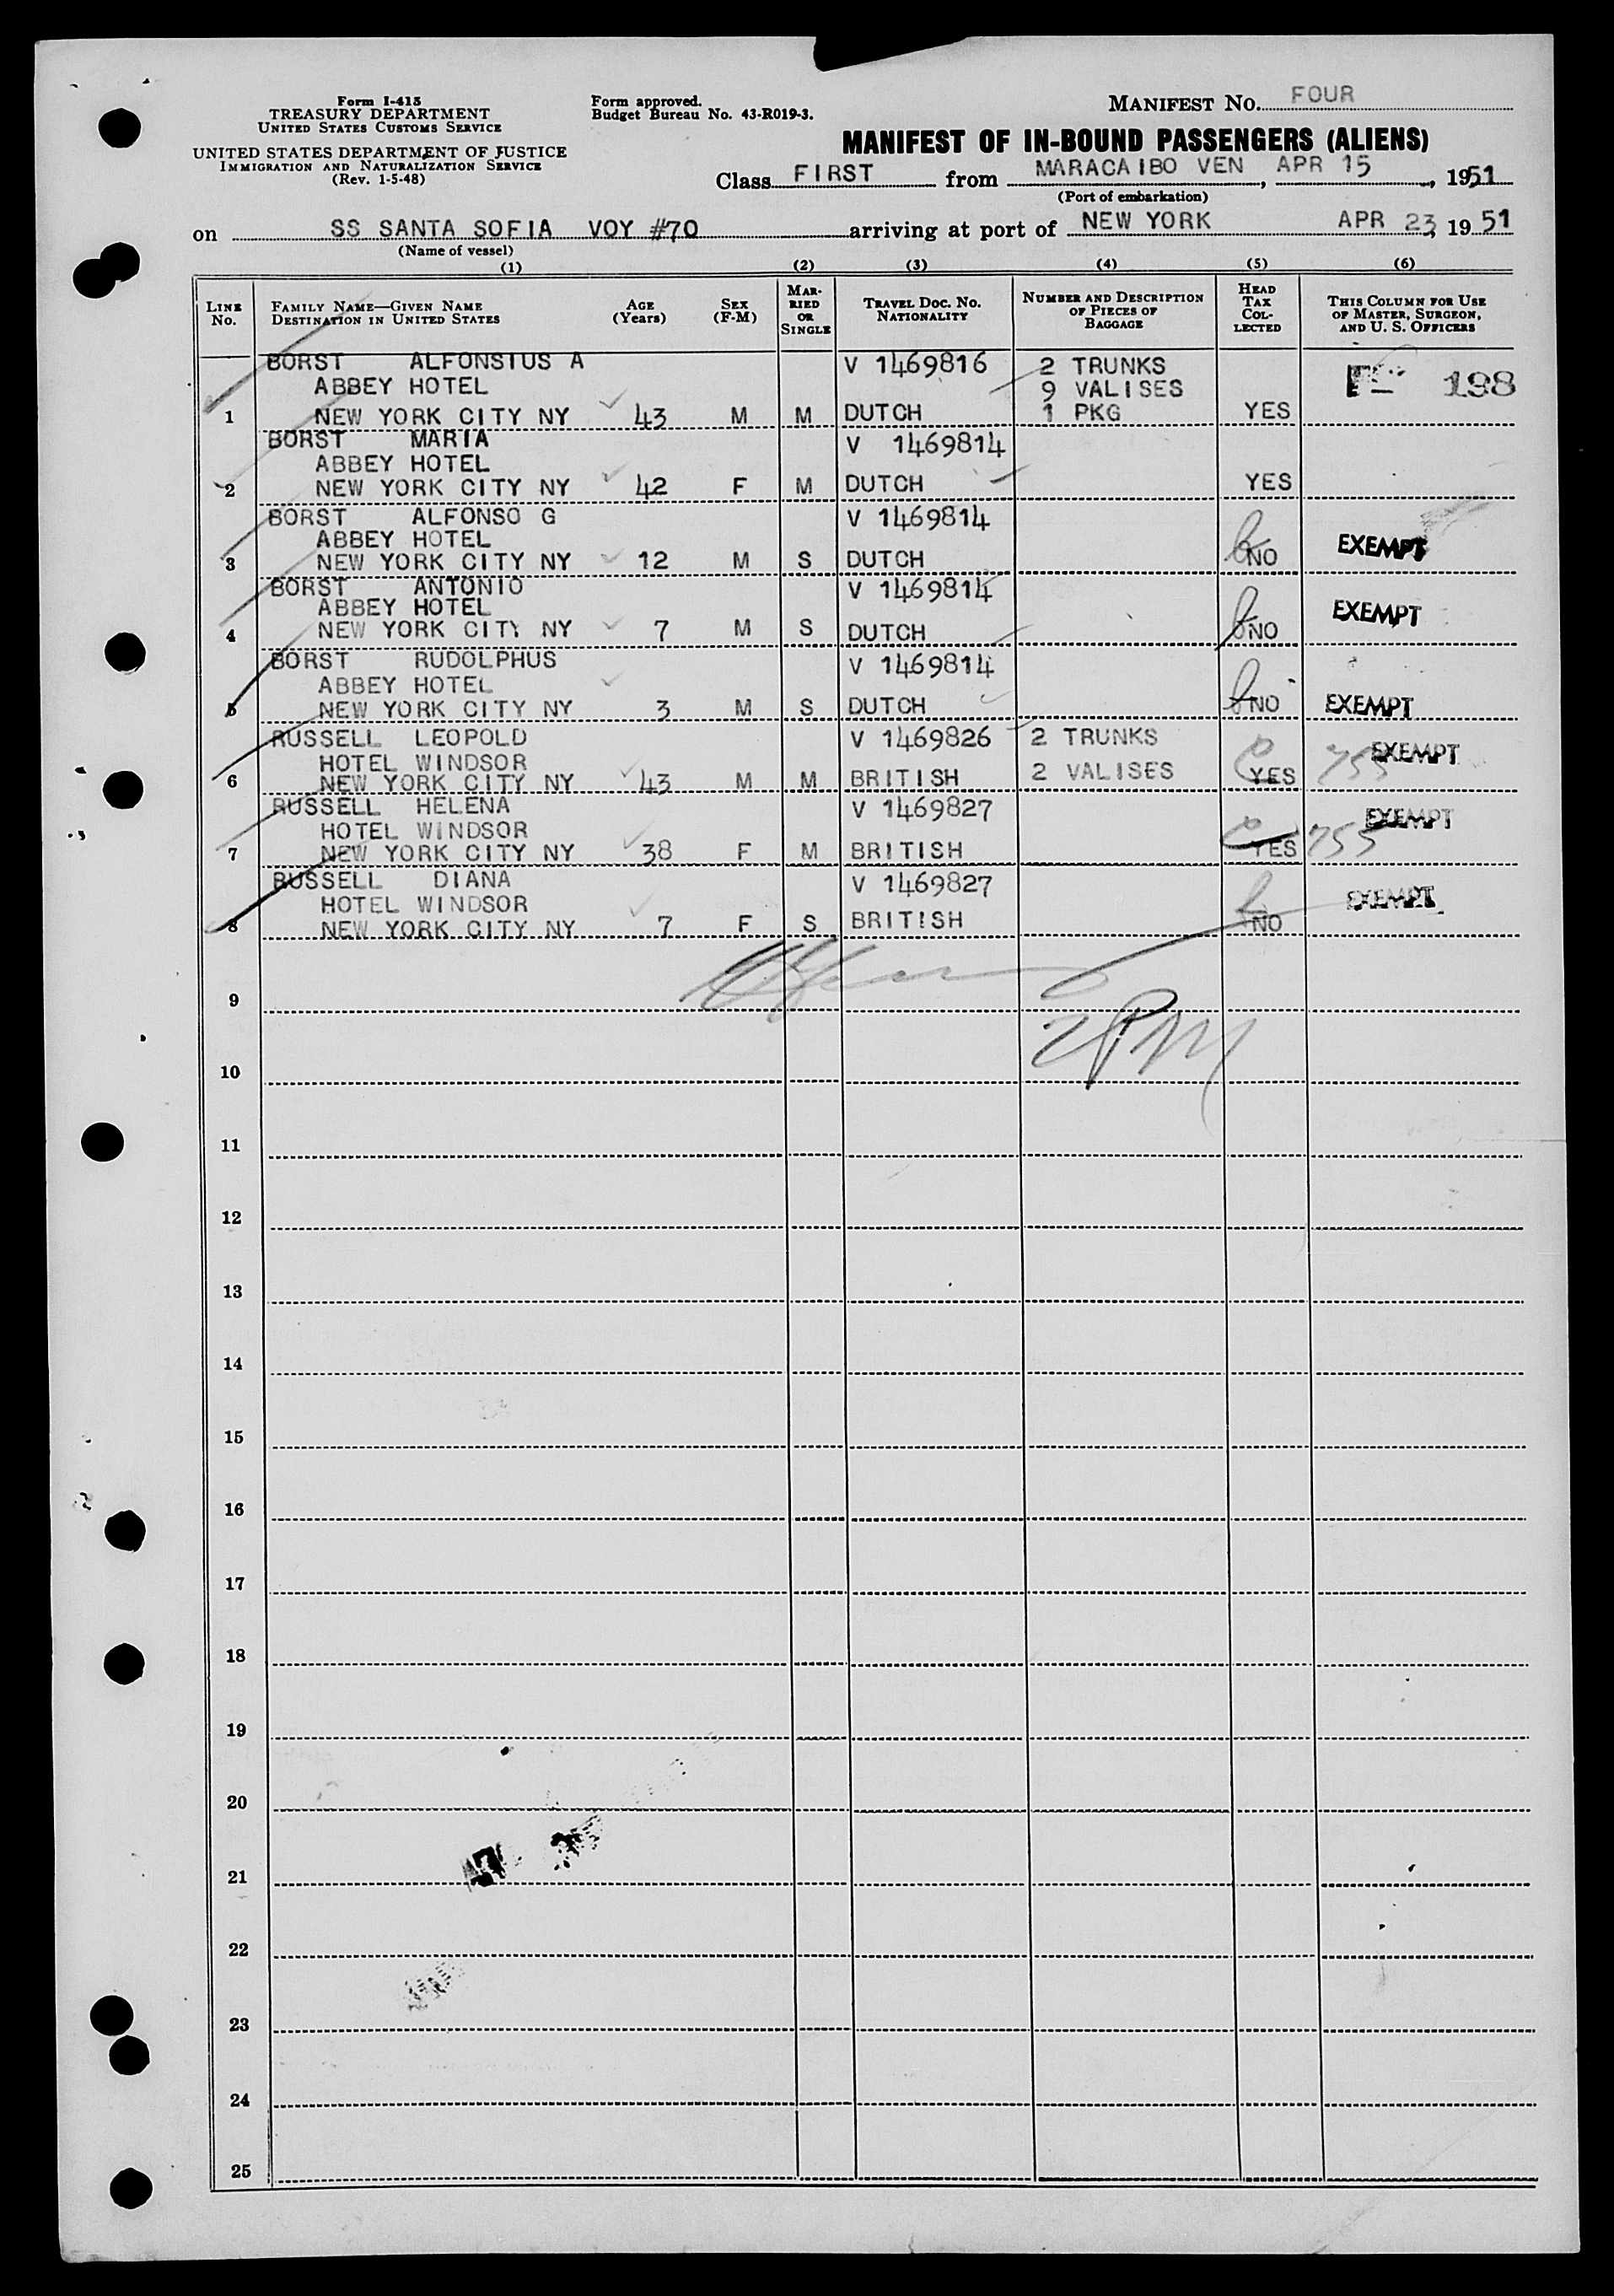 Form I-415
TREASURY DEPARTMENT
UNITED STATES CUSTOMS SERVICE
UNITED STATES DEPARTMENT OF JUSTICE
IMMIGRATION AND NATURALIZATION SERVICE
(Rev. 1-5-48)
Form approved.
Budget Bureau No. 43-R019-3.
MANIFEST NO. FOUR
MANIFEST OF IN-BOUND PASSENGERS (ALIENS)
Class FIRST from MARACAIBO VEN, APR 15, 1951
(Port of embarkation)
on SS SANTA SOFIA VOY #70 arriving at port of NEW YORK APR 23, 1951
(Name of vessel)
(1) (2) (3) (4) (5) (6)
LINE NO. FAMILY NAME—GIVEN NAME DESTINATION IN UNITED STATES AGE (YEARS) SEX (F-M) MARRIED OR SINGLE TRAVEL DOC. NO. NATIONALITY NUMBER AND DESCRIPTION OF PIECES OF BAGGAGE HEAD TAX COLLECTED THIS COLUMN FOR USE OF MASTER, SURGEON, AND U. S. OFFICERS
BORST ALFONSIUS A V 1469816 2 TRUNKS 198
ABBEY HOTEL 9 VALISES
1 NEW YORK CITY NY 43 M M DUTCH 1 PKG YES
BORST MARIA V 1469814
ABBEY HOTEL
2 NEW YORK CITY NY 42 F M DUTCH YES
BORST ALFONSO G V 1469814
ABBEY HOTEL
3 NEW YORK CITY NY 12 M S DUTCH NO EXEMPT
BORST ANTONIO V 1469814
ABBEY HOTEL
4 NEW YORK CITY NY 7 M S DUTCH NO EXEMPT
BORST RUDOLPHUS V 1469814
ABBEY HOTEL
5 NEW YORK CITY NY 3 M S DUTCH NO EXEMPT
RUSSELL LEOPOLD V 1469826 2 TRUNKS
HOTEL WINDSOR
6 NEW YORK CITY NY 43 M M BRITISH 2 VALISES YES 755 EXEMPT
RUSSELL HELENA V 1469827
HOTEL WINDSOR
7 NEW YORK CITY NY 38 F M BRITISH YES 755 EXEMPT
RUSSELL DIANA V 1469827
HOTEL WINDSOR
8 NEW YORK CITY NY 7 F S BRITISH NO EXEMPT
9
2PM
10
11
12
13
14
15
16
17
18
19
20
21
22
23
24
25